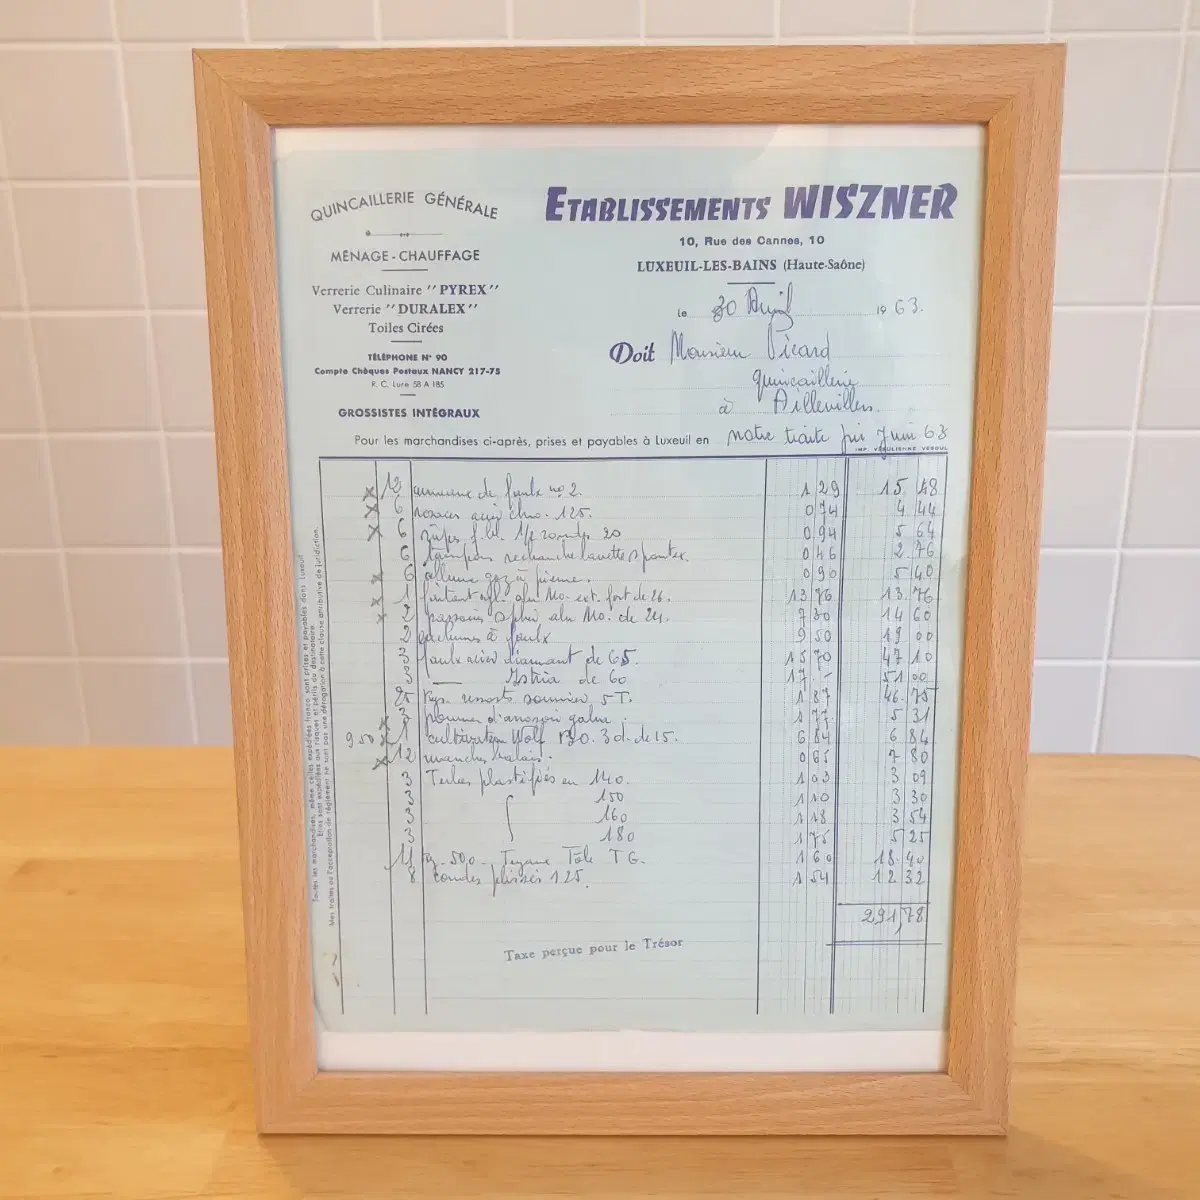 QUINCAILLERIE GÉNÉRALE
MÉNAGE - CHAUFFAGE
Verrerie Culinaire "PYREX"
Verrerie "DURALEX"
Toiles Cirées
TÉLÉPHONE N° 90
Compte Chèques Postaux NANCY 217-75
R. C. Lure 58 A 185
GROSSISTES INTÉGRAUX
ETABLISSEMENTS WISZNER
10, Rue des Cannes, 10
LUXEUIL-LES-BAINS (Haute-Saône)
le 30 Avril 1963.
Doit Monsieur Picard
quincaillerie
à Aillevillers.
Pour les marchandises ci-après, prises et payables à Luxeuil en notre traite fin Juin 63
IMP. VÉSULIENNE VESOUL
X 12 de faulx no 2. 1 29 15.48
X 6 125. 0 74 4 44
X 6 1/2 20 0 94 5 64
6 tampons rechange lavettes spontex. 0 46 2.76
X 6 allume gaz à pierre. 0 90 5 40
X 1 alu Mo. ext. fort de 26. 13 76 13.76
X 2 passoires alu Mo. de 24. 7 30 14 60
2 à faulx 9 50 19 00
3 faulx acier diamant de 65. 15 70 47 10
3 — Istria de 60 17. - 51 00
25 Kgs. ressorts sommier 5 T. 1 87 46.75
X 3 pommes d'arrosoir galva. 1 77 5 31
950 X 1 cultivateur Wolf 3 d. de 15. 6 84 6 84
X 12 manches balais. 0 65 7 80
3 plastifiés en 140. 1 03 3 09
3 150 1 10 3 30
3 160 1 18 3 54
3 180 1 75 5 25
11 Kg. 500 - Tuyaux Tôle T G. 1 60 18.40
8 coudes plissés 125. 1 54 12 32
291,78
Taxe perçue pour le Trésor
Toutes les marchandises, même celles expédiées franco, sont prises et payables dans Luxeuil
Elles sont expédiées aux risques et périls du destinataire.
Mes traites ou l'acceptation de règlement ne sont pas une dérogation à cette clause attributive de juridiction.